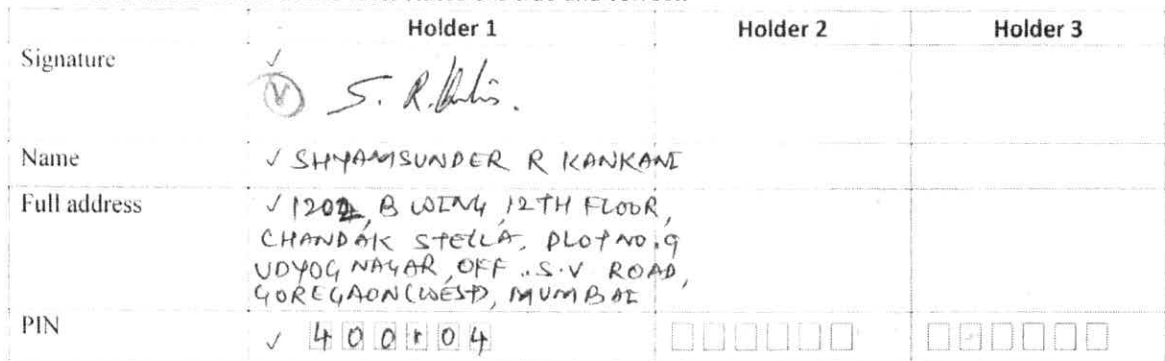 Holder 1 Holder 2 Holder 3
Signature ✓ V S. R.
Name ✓ SHYAMSUNDER R KANKANI
Full address ✓ 1202, B WING, 12TH FLOOR,
CHANDAK STELLA, PLOT NO. 9
UDYOG NAGAR, OFF. S.V ROAD,
GOREGAON (WEST), MUMBAI
PIN ✓ 400104